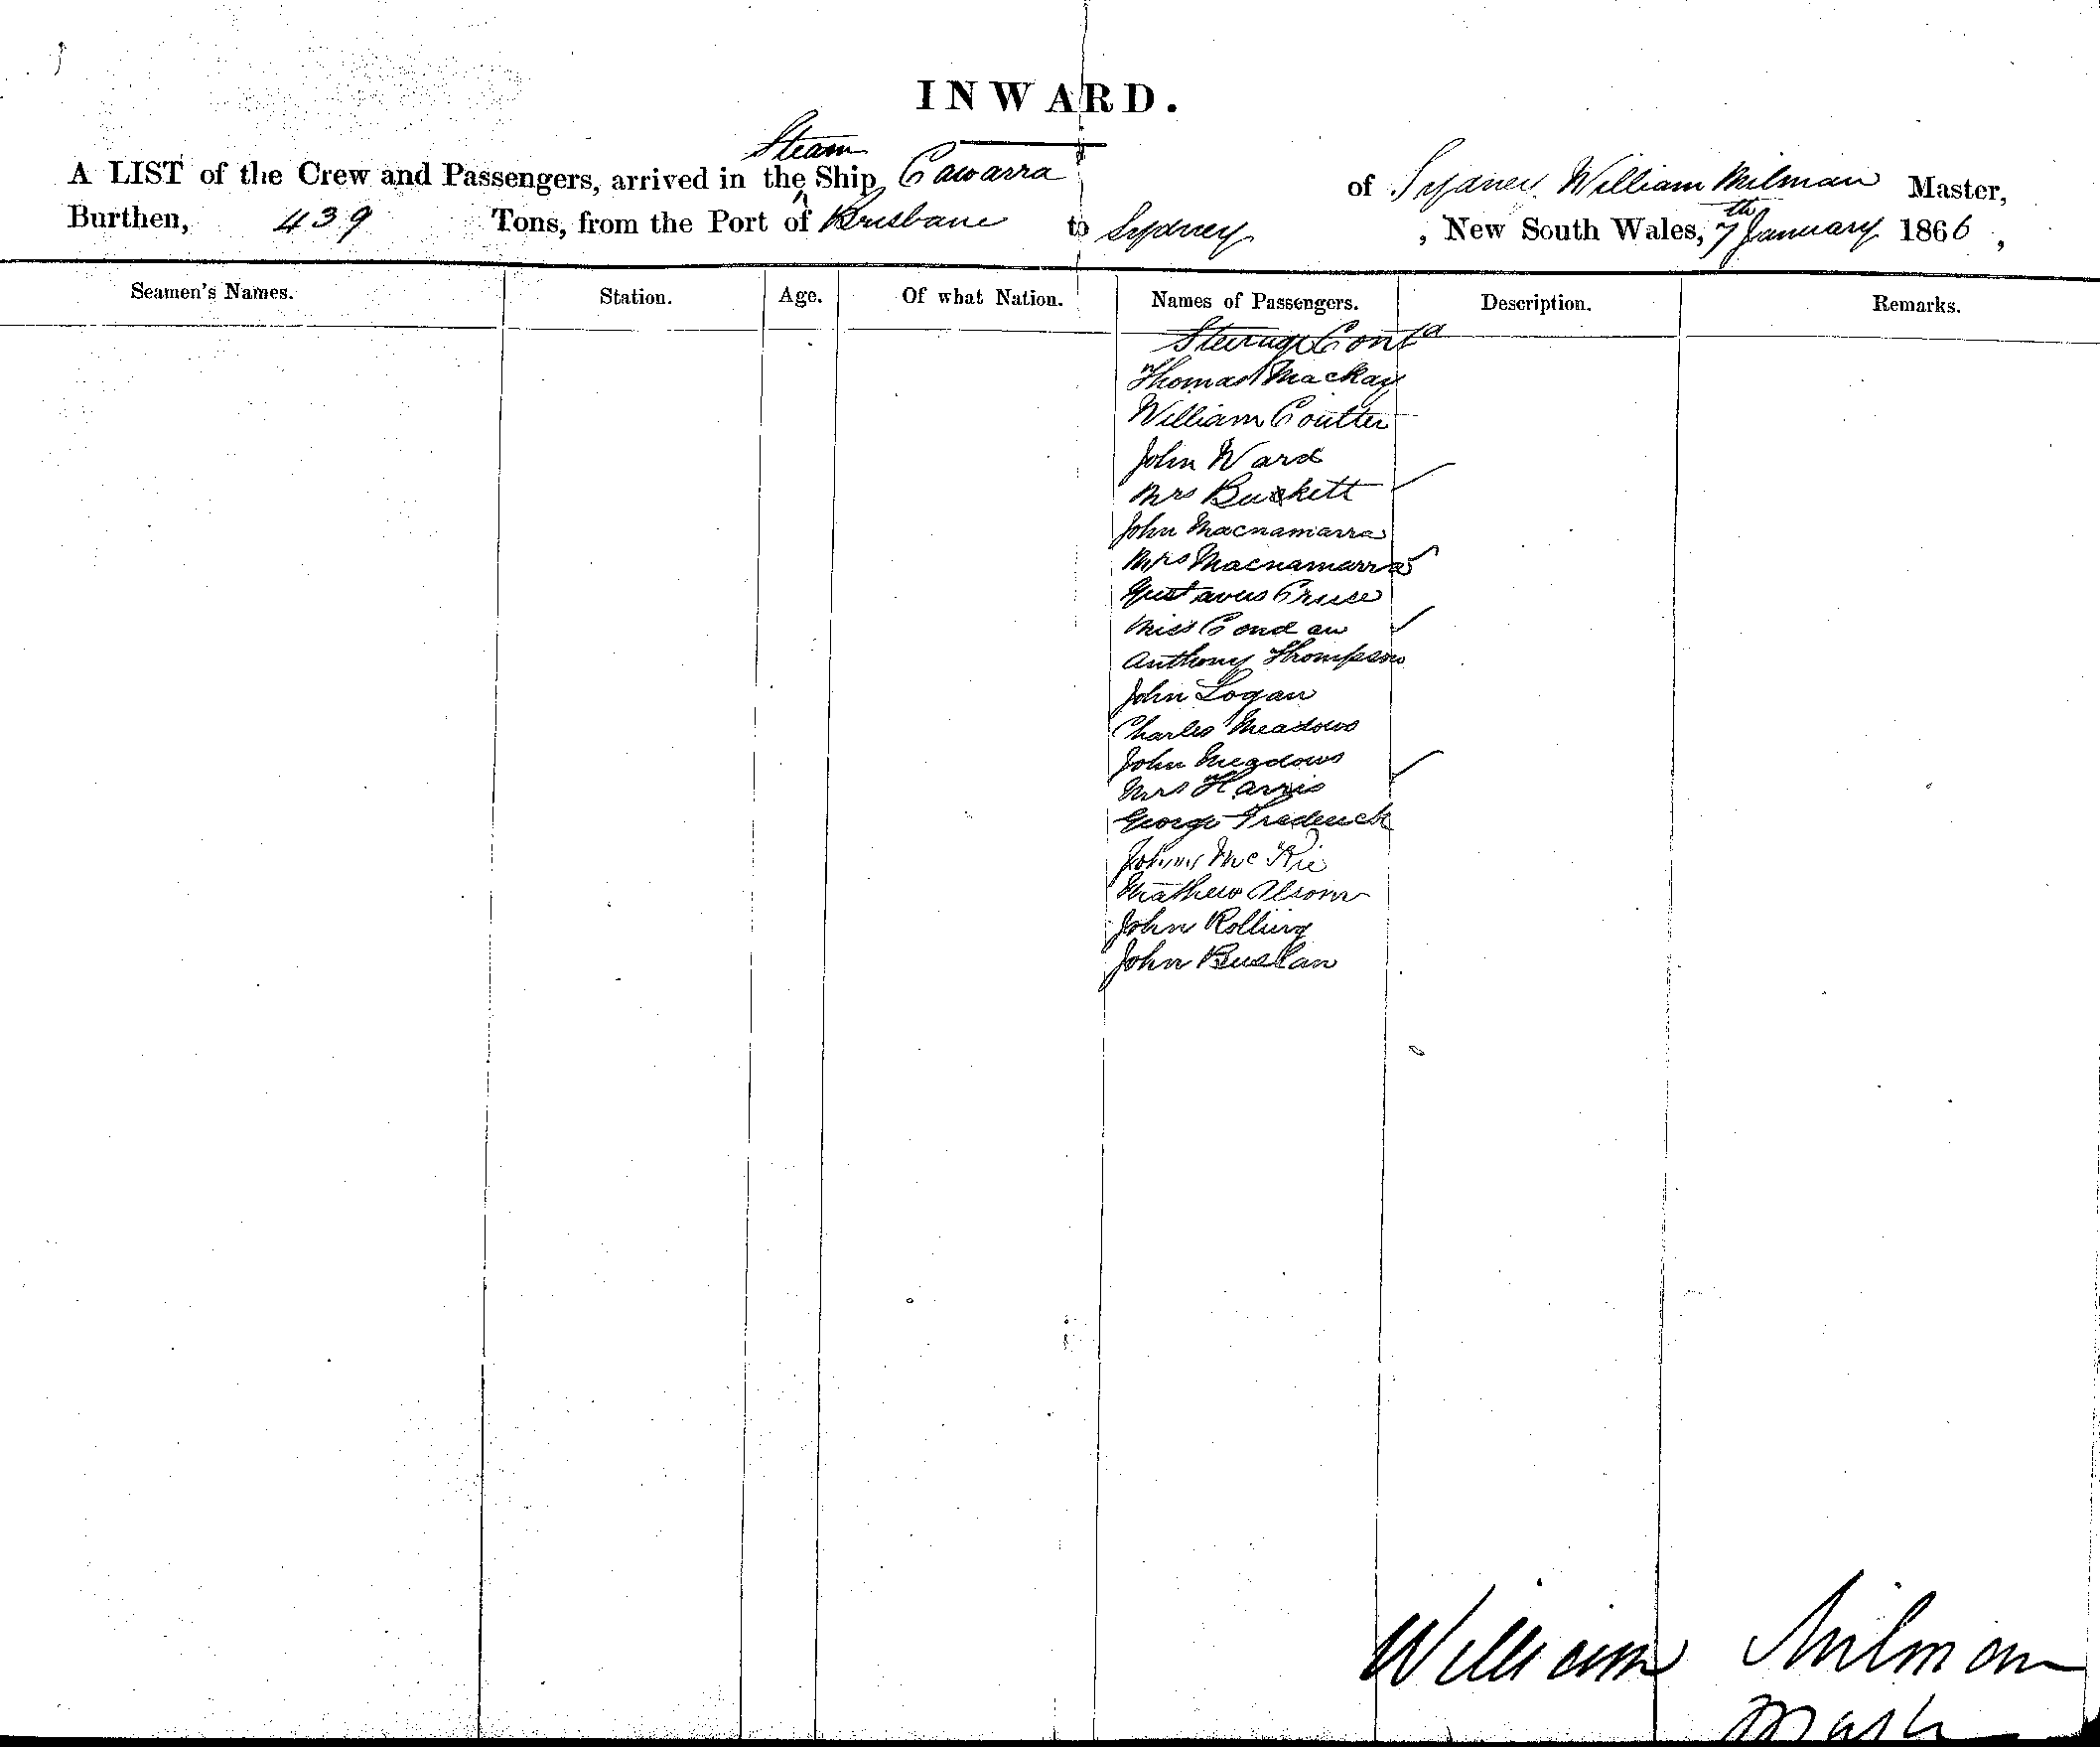 INWARD.
Steam
A LIST of the Crew and Passengers, arrived in the Ship Cawarra of Sydney William Milman Master,
Burthen, 439 Tons, from the Port of Brisbane to Sydney, New South Wales, 7th January 1866,
Seamen's Names. Station. Age. Of what Nation. Names of Passengers. Description. Remarks.
Steerage Contd
Thomas Mackay
William Coulter
John Ward
Mrs Buckett
John Macnamarra
Mrs Macnamarra
Gustavus Cruse
Miss Condan
Anthony Thompson
John Logan
Charles Meadows
John Meadows
Mrs Harris
George Frederick
McKie
Mathew
John Rolling
John
William Milman